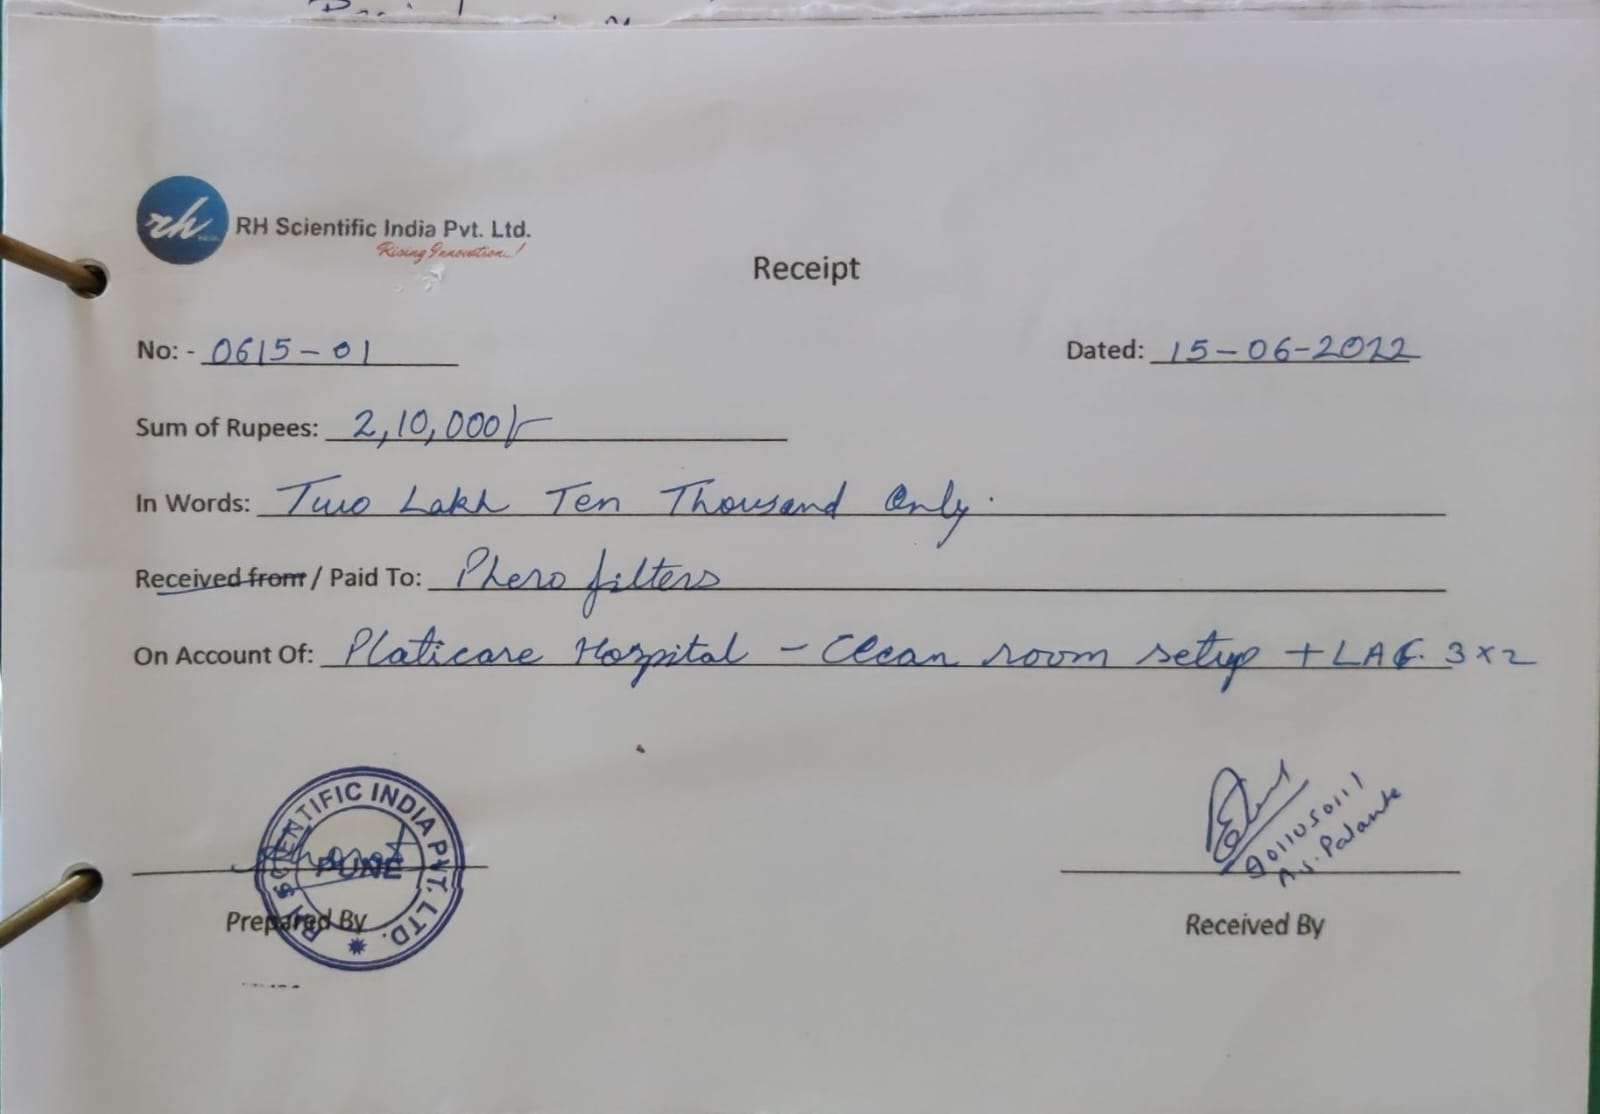 rh
RH Scientific India Pvt. Ltd.
Rising Innovation..!
Receipt
No: - 0615-01
Dated: 15-06-2022
Sum of Rupees: 2,10,000/-
In Words: Two Lakh Ten Thousand Only.
Received from / Paid To: Phero filters
On Account Of: Platicare Hospital - Clean room setup + LAF 3x2
RH SCIENTIFIC INDIA PVT. LTD.
PUNE
Prepared By
A.S. Palande
Received By